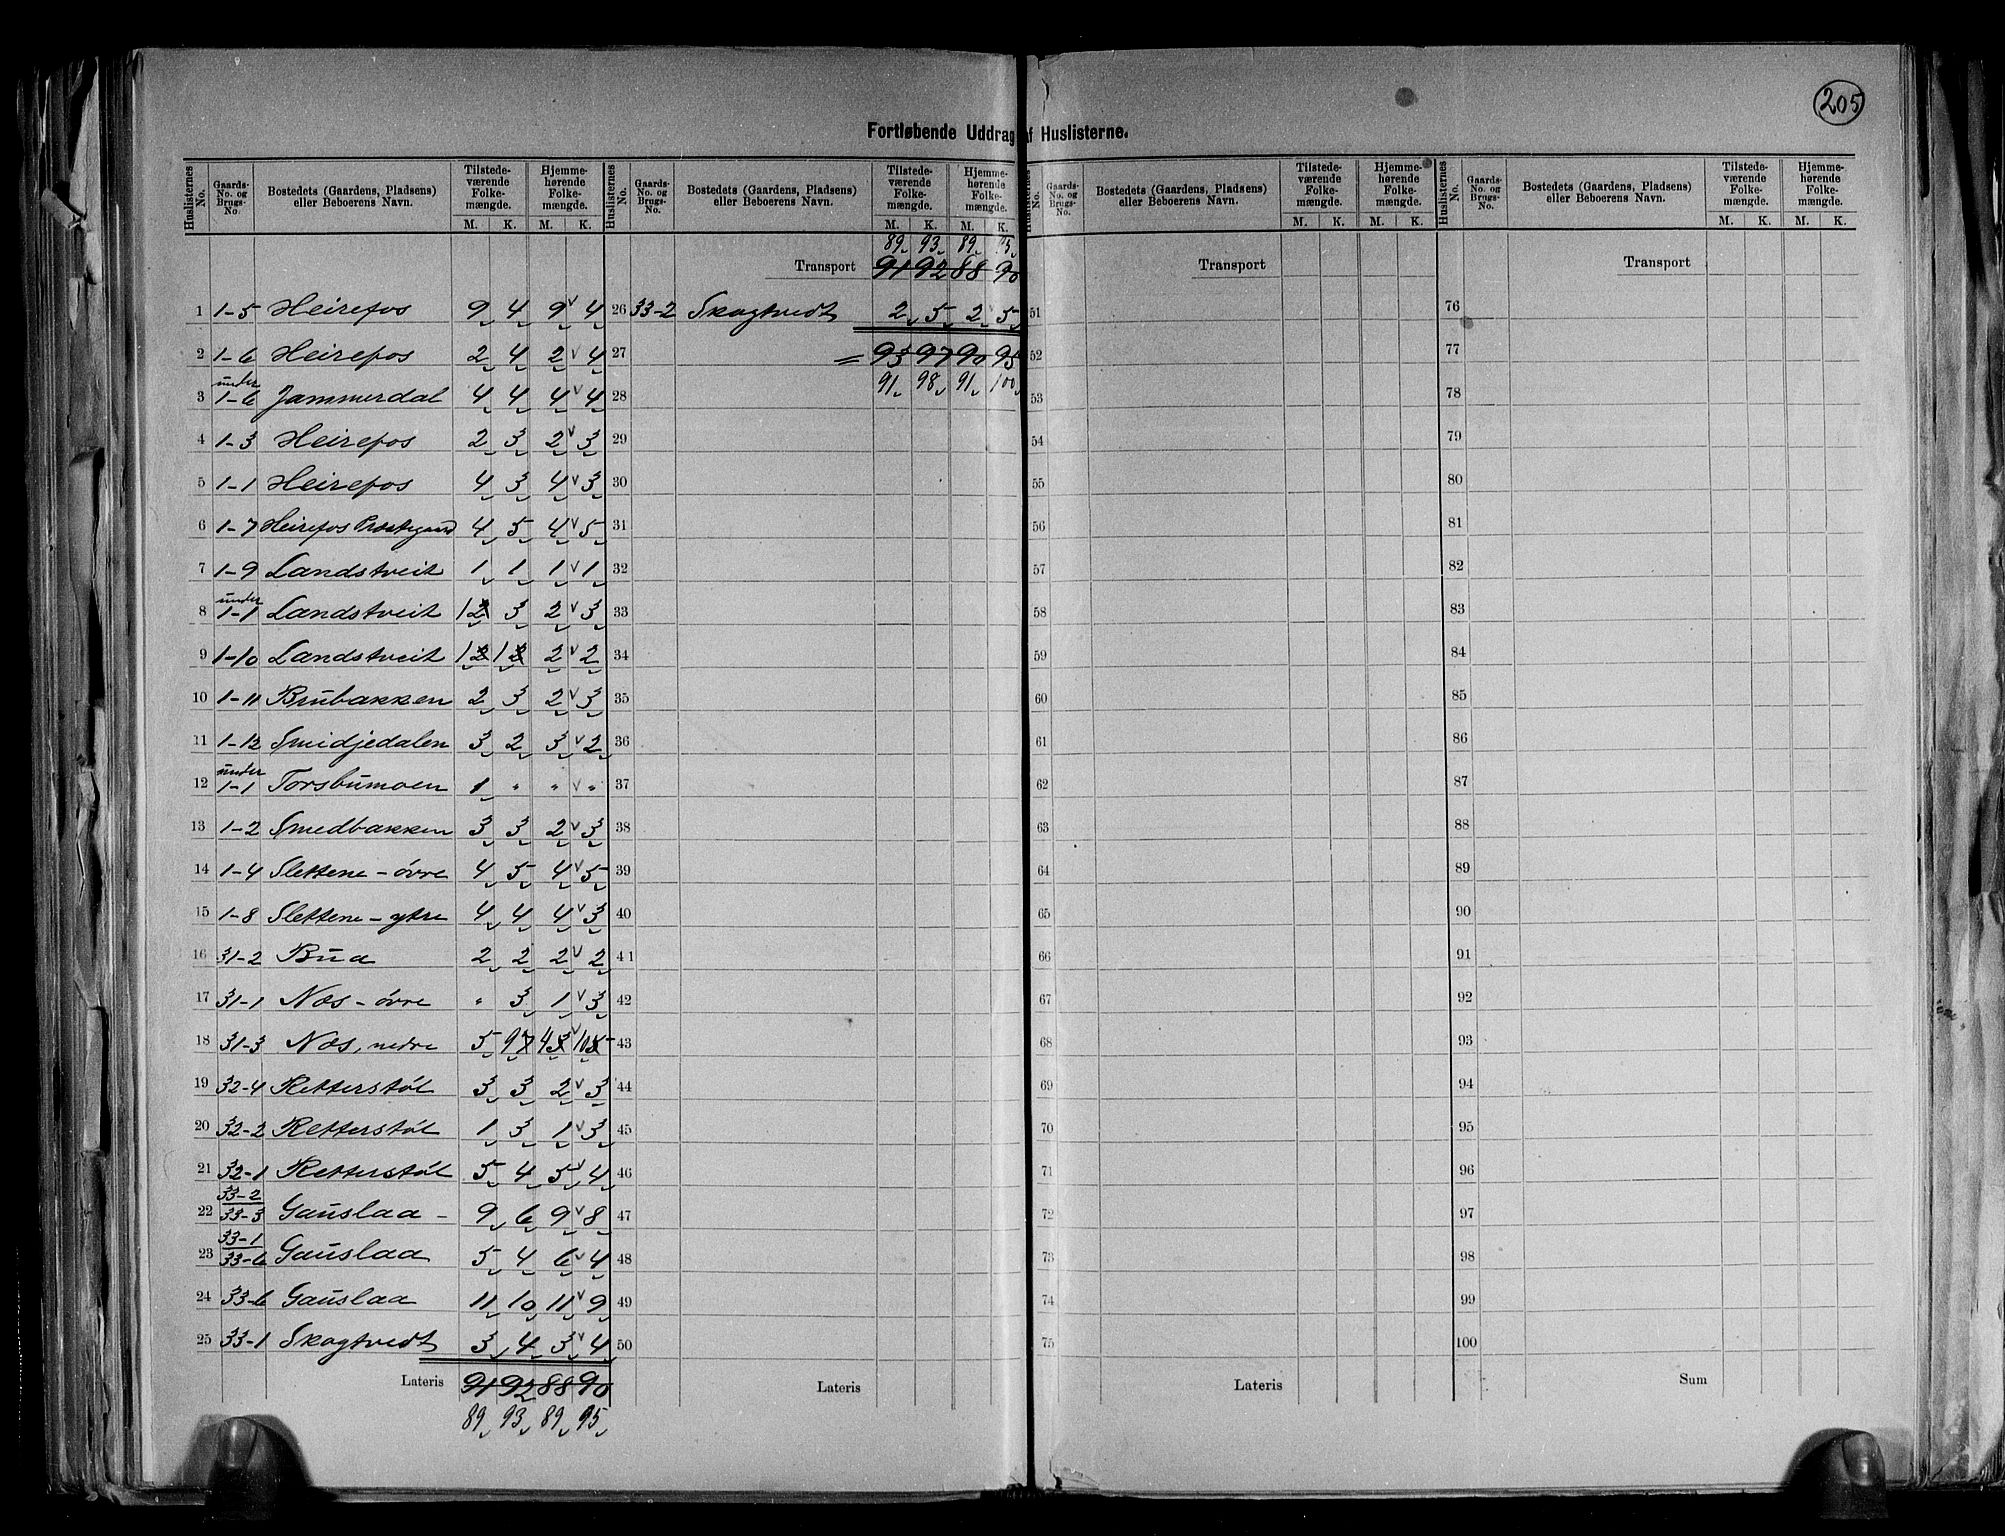 205
Fortløbende Uddrag af Huslisterne.
Huslisternes No. | Gaards-No. og Brugs-No. | Bostedets (Gaardens, Pladsens) eller Beboerens Navn. | Tilstedeværende Folkemængde. M. K. | Hjemmehørende Folkemængde. M. K.
1 1-5 Heirefos 9 4 9 v 4
2 1-6 Heirefos 2 4 2 v 4
3 under 1-6 Jammerdal 4 4 4 v 4
4 1-3 Heirefos 2 3 2 v 3
5 1-1 Heirefos 4 3 4 v 3
6 1-7 Heirefos Præstegaard 4 5 4 v 5
7 1-9 Landstveit 1 1 1 v 1
8 under 1-1 Landstveit 1 2 3 2 v 3
9 1-10 Landstveit 1 2 1 2 2 v 2
10 1-11 Brubakken 2 3 2 v 3
11 1-12 Smidjedalen 3 2 3 v 2
12 under 1-1 Torsbumoen 1 " " v "
13 1-2 Smedbakken 3 3 2 v 3
14 1-4 Slettene - övre 4 5 4 v 5
15 1-8 Slettene - ytre 4 4 4 v 3
16 31-2 Bua 2 2 2 v 2
17 31-1 Næs - övre " 3 1 v 3
18 31-3 Næs, nedre 5 9 7 4 3 v 10 5
19 32-4 Retterstöl 3 3 2 v 3
20 32-2 Retterstöl 1 3 1 v 3
21 32-1 Retterstöl 5 4 5 v 4
22 33-2 33-3 Gauslaa - 9 6 9 v 8
23 33-1 33-6 Gauslaa 5 4 6 v 4
24 33-6 Gauslaa 11 10 11 v 9
25 33-1 Skogtvedt 3 4 3 v 4
Lateris 91 92 88 90
89 93 89 95
Huslisternes No. | Gaards-No. og Brugs-No. | Bostedets (Gaardens, Pladsens) eller Beboerens Navn. | Tilstedeværende Folkemængde. M. K. | Hjemmehørende Folkemængde. M. K.
89 93 89 95
Transport 91 92 88 90
26 33-2 Skogtvedt 2 5 2 v 5
27 = 93 97 90 95
91 98 91 100
28
29
30
31
32
33
34
35
36
37
38
39
40
41
42
43
44
45
46
47
48
49
50
Lateris
Huslisternes No. | Gaards-No. og Brugs-No. | Bostedets (Gaardens, Pladsens) eller Beboerens Navn. | Tilstedeværende Folkemængde. M. K. | Hjemmehørende Folkemængde. M. K.
Transport
51
52
53
54
55
56
57
58
59
60
61
62
63
64
65
66
67
68
69
70
71
72
73
74
75
Lateris
Huslisternes No. | Gaards-No. og Brugs-No. | Bostedets (Gaardens, Pladsens) eller Beboerens Navn. | Tilstedeværende Folkemængde. M. K. | Hjemmehørende Folkemængde. M. K.
Transport
76
77
78
79
80
81
82
83
84
85
86
87
88
89
90
91
92
93
94
95
96
97
98
99
100
Sum